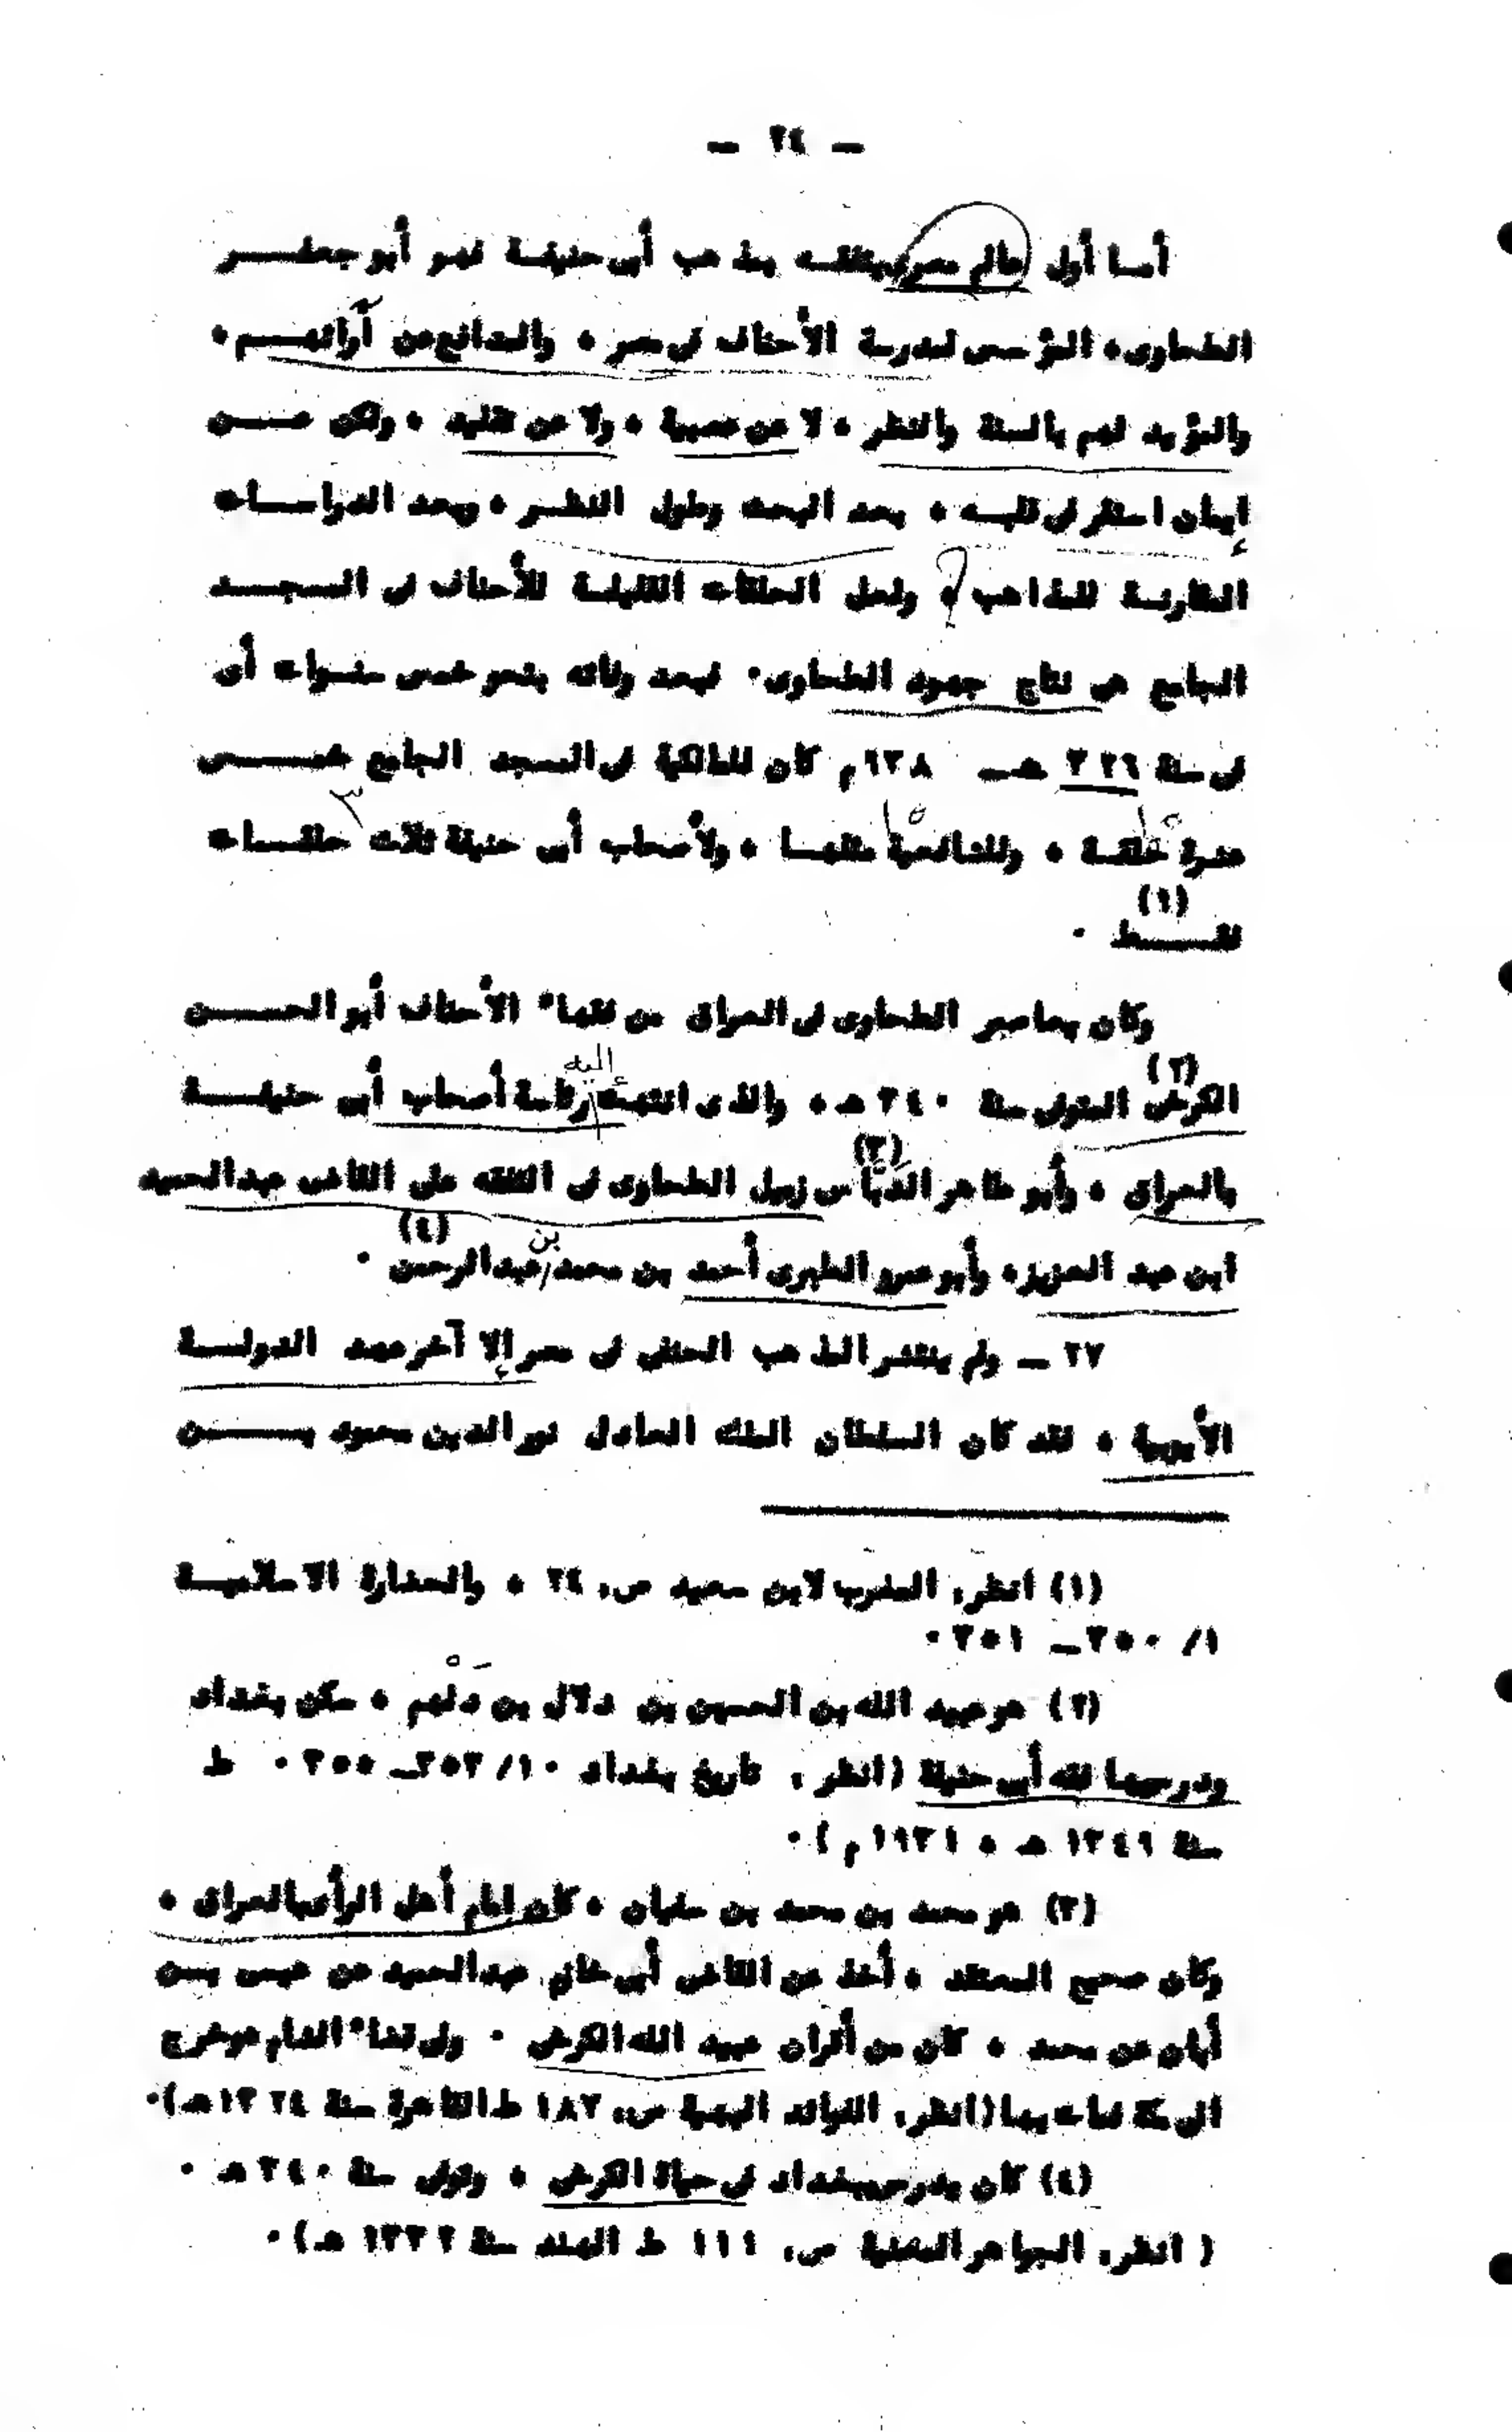 — ٢٤ —
أما أول عالم مصرى يتفقه بمذهب أبى حنيفة فهو أبو جعفر
الطحاوى، المؤسس لمدرسة الأحناف فى مصر، والمدافع عن آرائهم،
والمؤيد لهم بالسنة والنظر، لا عن عصبية، ولا عن تقليد، ولكن عن
إيمان استقر فى قلبه، بعد البحث وطول النظر، وبعد الدراسات
المقارنة للمذاهب، ولعل الحلقات القليلة للأحناف فى المسجد
الجامع هى نتاج جهود الطحاوى. فبعد وفاته بنحو خمس سنوات أى
فى سنة ٣٢٦ هـ — ٩٣٨م كان للمالكية فى المسجد الجامع خمس
عشرة حلقة، وللشافعية مثلها، ولأصحاب أبى حنيفة ثلاث حلقات
١٥ ١٥ ٣
فقط (١) .
وكان يعاصر الطحاوى فى العراق من فقهاء الأحناف أبو الحسن
الكرخى (٢) المتوفى سنة ٣٤٠ هـ، والذى انتهت إليه رئاسة أصحاب أبى حنيفة
بالعراق، وأبو طاهر الدَّبَّاس (٣) زميل الطحاوى فى التفقه على القاضى عبدالحميد
ابن عبد العزيز، وأبو عمرو الطبرى أحمد بن محمد بن عبدالرحمن (٤) .
٢٧ — ولم ينتشر المذهب الحنفى فى مصر إلا آخر عهد الدولة
الأيوبية، فقد كان السلطان الملك العادل نور الدين محمود بن
(١) انظر: المغرب لابن سعيد ص: ٢٤، والحضارة الاسلامية
١/ ٣٥٠ — ٣٥١ .
(٢) هو عبيد الله بن الحسين بن دلال بن دَلْهم، سكن بغداد
ودرس بها فقه أبى حنيفة (انظر: تاريخ بغداد ١٠/ ٣٥٣ — ٣٥٥ . ط
سنة ١٣٤٩ هـ، ١٩٣١ م) .
(٣) هو محمد بن محمد بن سفيان، كان امام أهل الرأى بالعراق،
وكان صحيح المعتقد، أخذ عن القاضى أبى خازم عبدالحميد عن عيسى بن
أبان عن محمد، كان من أقران عبيد الله الكرخى . ولى قضاء الشام وخرج
الى مكة فمات بها (انظر: الفوائد البهية ص: ١٨٧ ط القاهرة سنة ١٣٢٤ هـ).
(٤) كان يدرس ببغداد فى حياة الكرخى، وتوفى سنة ٣٤٠ هـ .
( انظر: الجواهر المضية ص: ١١١ ط الهند سنة ١٣٣٢ هـ) .